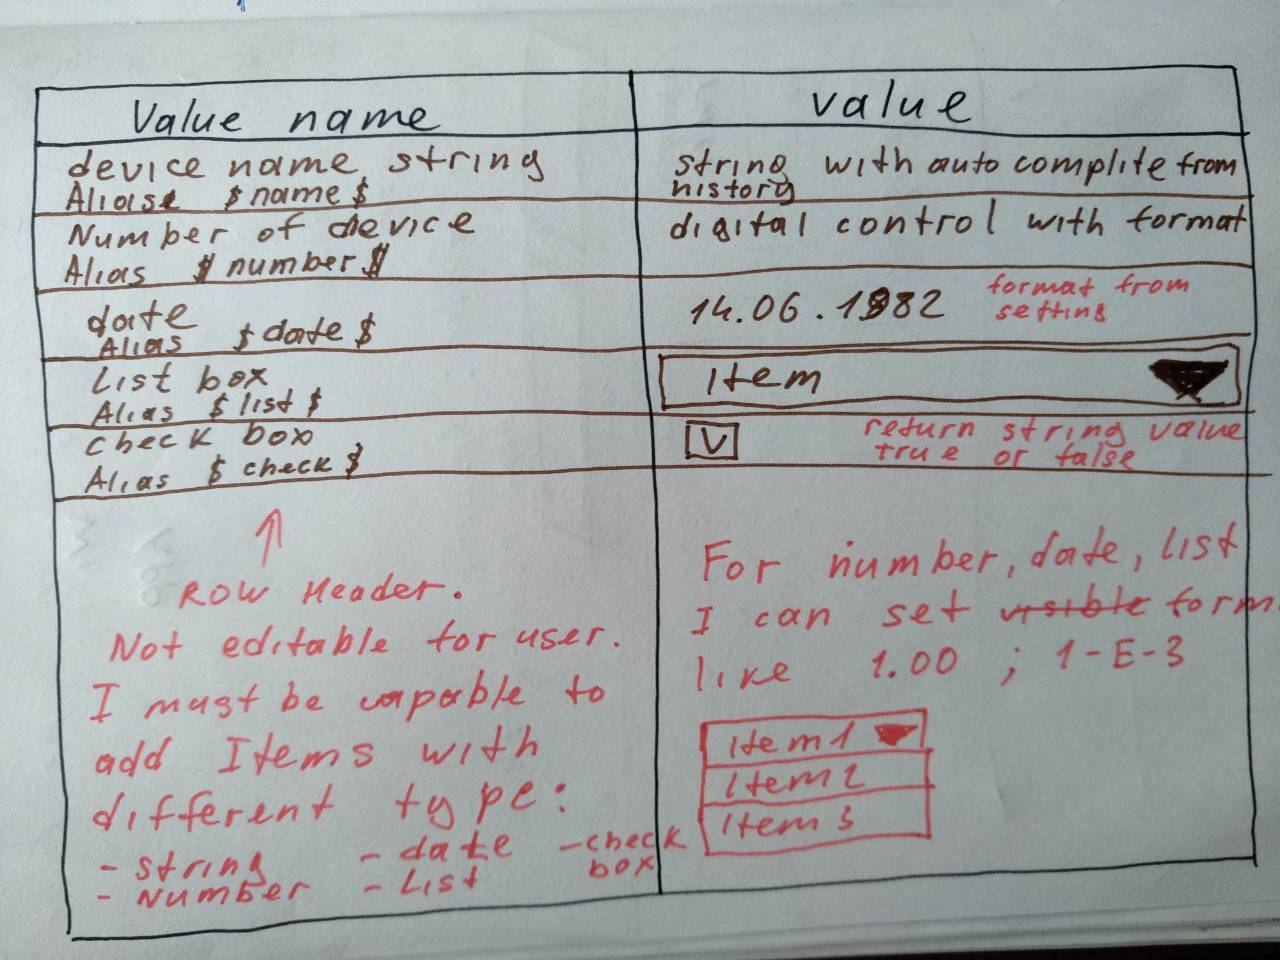 Value name
value
device name string
Aliase $name$
string with auto complite from
history
Number of device
Alias $number$
digital control with format
date
Alias $date$
14.06.1982
format from
setting
List box
Alias $list$
Item
check box
Alias $check$
V
return string value
true or false
Row Header.
Not editable for user.
I must be capable to
add Items with
different type:
- string - date - check
box
- Number - List
For number, date, list
I can set visible form
like 1.00 ; 1-E-3
Item1
Item2
Item3